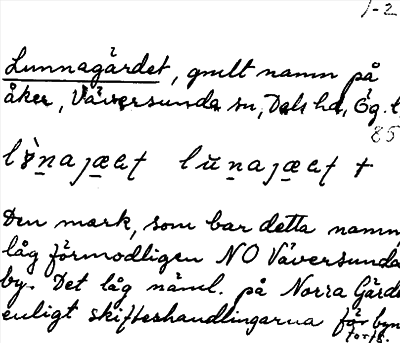 1-2
Lunnagärdet, gmlt namn på
åker, Väversunda sn, Dals hd, Ög. l
85
Den mark, som bar detta namn,
låg förmodligen NO Väversunda
by. Det låg näml. på Norra Gärde
enligt skifteshandlingarna för byn
forts.